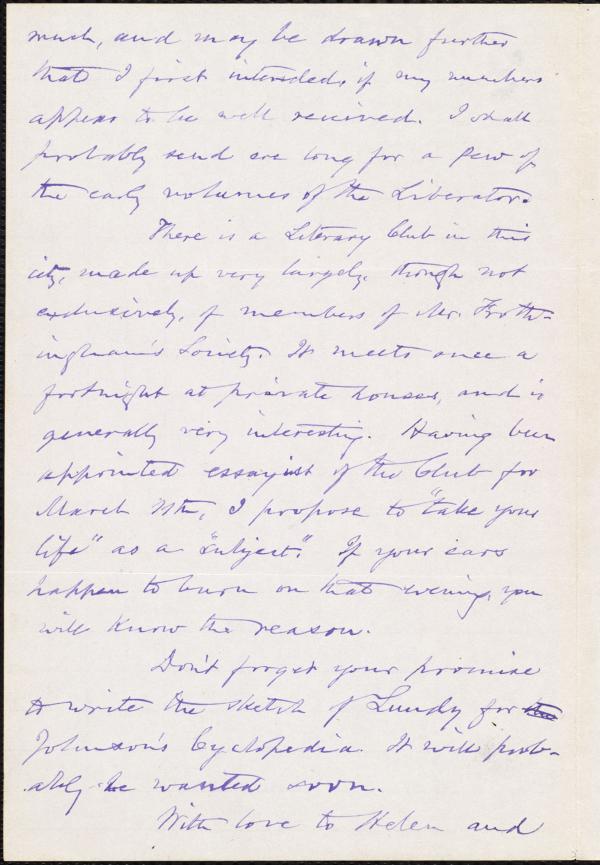 much, and may be drawn further
that I first intended, if my numbers
appear to be well received. I shall
probably send ere long for a few of
the early volumes of the Liberator.
There is a Literary Club in this
city, made up very largely, though not
exclusively, of members of Mr. Froth-
ingham's Society. It meets once a
fortnight at private houses, and is
generally very interesting. Having been
appointed essayist of the Club for
March, I propose to "take your
life" as a "subject". If your ears
happen to burn on that evening, you
will know the reason.
Don't forget your promise
to write the sketch of Lundy for the
Johnson's Cyclopedia. It will prob-
ably be wanted soon.
With love to Helen and